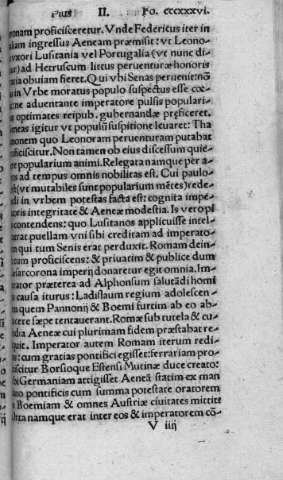 Pius II. Fo. ccccxxxvi.
ronam proficisceretur. Vnde Federicus iter in
ingressus Aeneam præmisit: vt Leono
vxori Lusitania vel Portugalia (vt nunc di
ad Hetruscum littus peruenturæ honoris
obuiam fieret. Qui vbi Senas peruenit
in Vrbe moratus populo suspectus esse
ne aduentante imperatore pulsis populari
optimates reipub. gubernandæ præficeret.
neas igitur vt populũ suspitione leuaret: Tha
monem quo Leonoram peruenturam putabat
ficiscitur. Non tamen ob eius discessum quie
popularium animi. Relegata namque per a
ad tempus omnis nobilitas est. Cui paulo
(vt mutabiles sunt popularium mẽtes) rede
di in vrbem potestas facta est: cognita impe
oris integritate & Aeneæ modestia. Is vero
contendens: quo Lusitanos applicuisse intel
puellam vni sibi creditam ad imperato
qui tum Senis erat perduxit. Romam dein
tum proficiscens: & priuatim & publice dum
corona imperij donaretur egit omnia. Im
rator præterea ad Alphonsum salutãdi homi
causa iturus: Ladislaum regium adolescen
quem Pannonij & Boemi furtim ab eo ab
cere sæpe tentauerant. Romæ sub tutela & cu
Aeneæ cui plurimam fidem præstabat re
quit. Imperator autem Romam iterum redi
cum gratias pontifici egisset: ferrariam pro
ficiscitur Borsioque Estensi Mutinæ duce creato:
bi Germaniam attigisset Aeneã statim ex man
pontificis cum summa potestate oratorem
Boemiam & omnes Austriæ ciuitates mittit
namque erat inter eos & imperatorem cõ-
V iiij